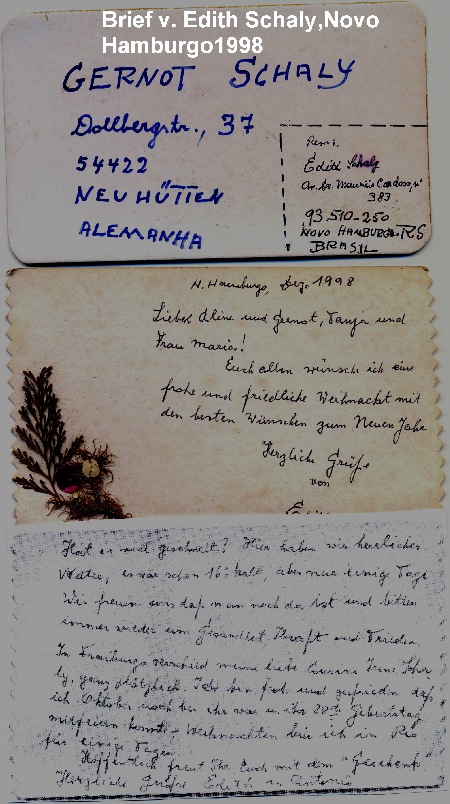 Brief v. Edith Schaly,Novo
Hamburgo1998
GERNOT SCHALY
Dollbergstr., 37
54422
NEUHÜTTEN
ALEMANHA
Rem.
Edith Schaly
Av. Dr. Maurício Cardoso, nº
383
93.510-250
NOVO HAMBURGO-RS
BRASIL
N. Hamburgo, Dez. 1998
Liebe Aline und Gernot, Tanja und
Frau Maria!
Euch allen wünsche ich eine
frohe und friedliche Weihnacht mit
den besten Wünschen zum Neuen Jahr
Herzliche Grüße
von
Hat es mal geschneit? Hier haben wir herrliches
Wetter, es war schon 16° kalt, aber nur einige Tage
Wir freuen uns daß man noch da ist und bitten
immer wieder um Gesundheit Kraft und Frieden
In Freiburgo verschied meine liebe Cousine Irene
ganz plötzlich. Ich bin froh und zufrieden daß
ich Oktober noch bei ihr war u. ihr Geburtstag
mitfeiern konnte - Weihnachten bin ich in Rio
für einige Tage.
Hoffentlich freut Ihr Euch mit dem "Geschenk"
Herzliche Grüße Edith u. Antonio